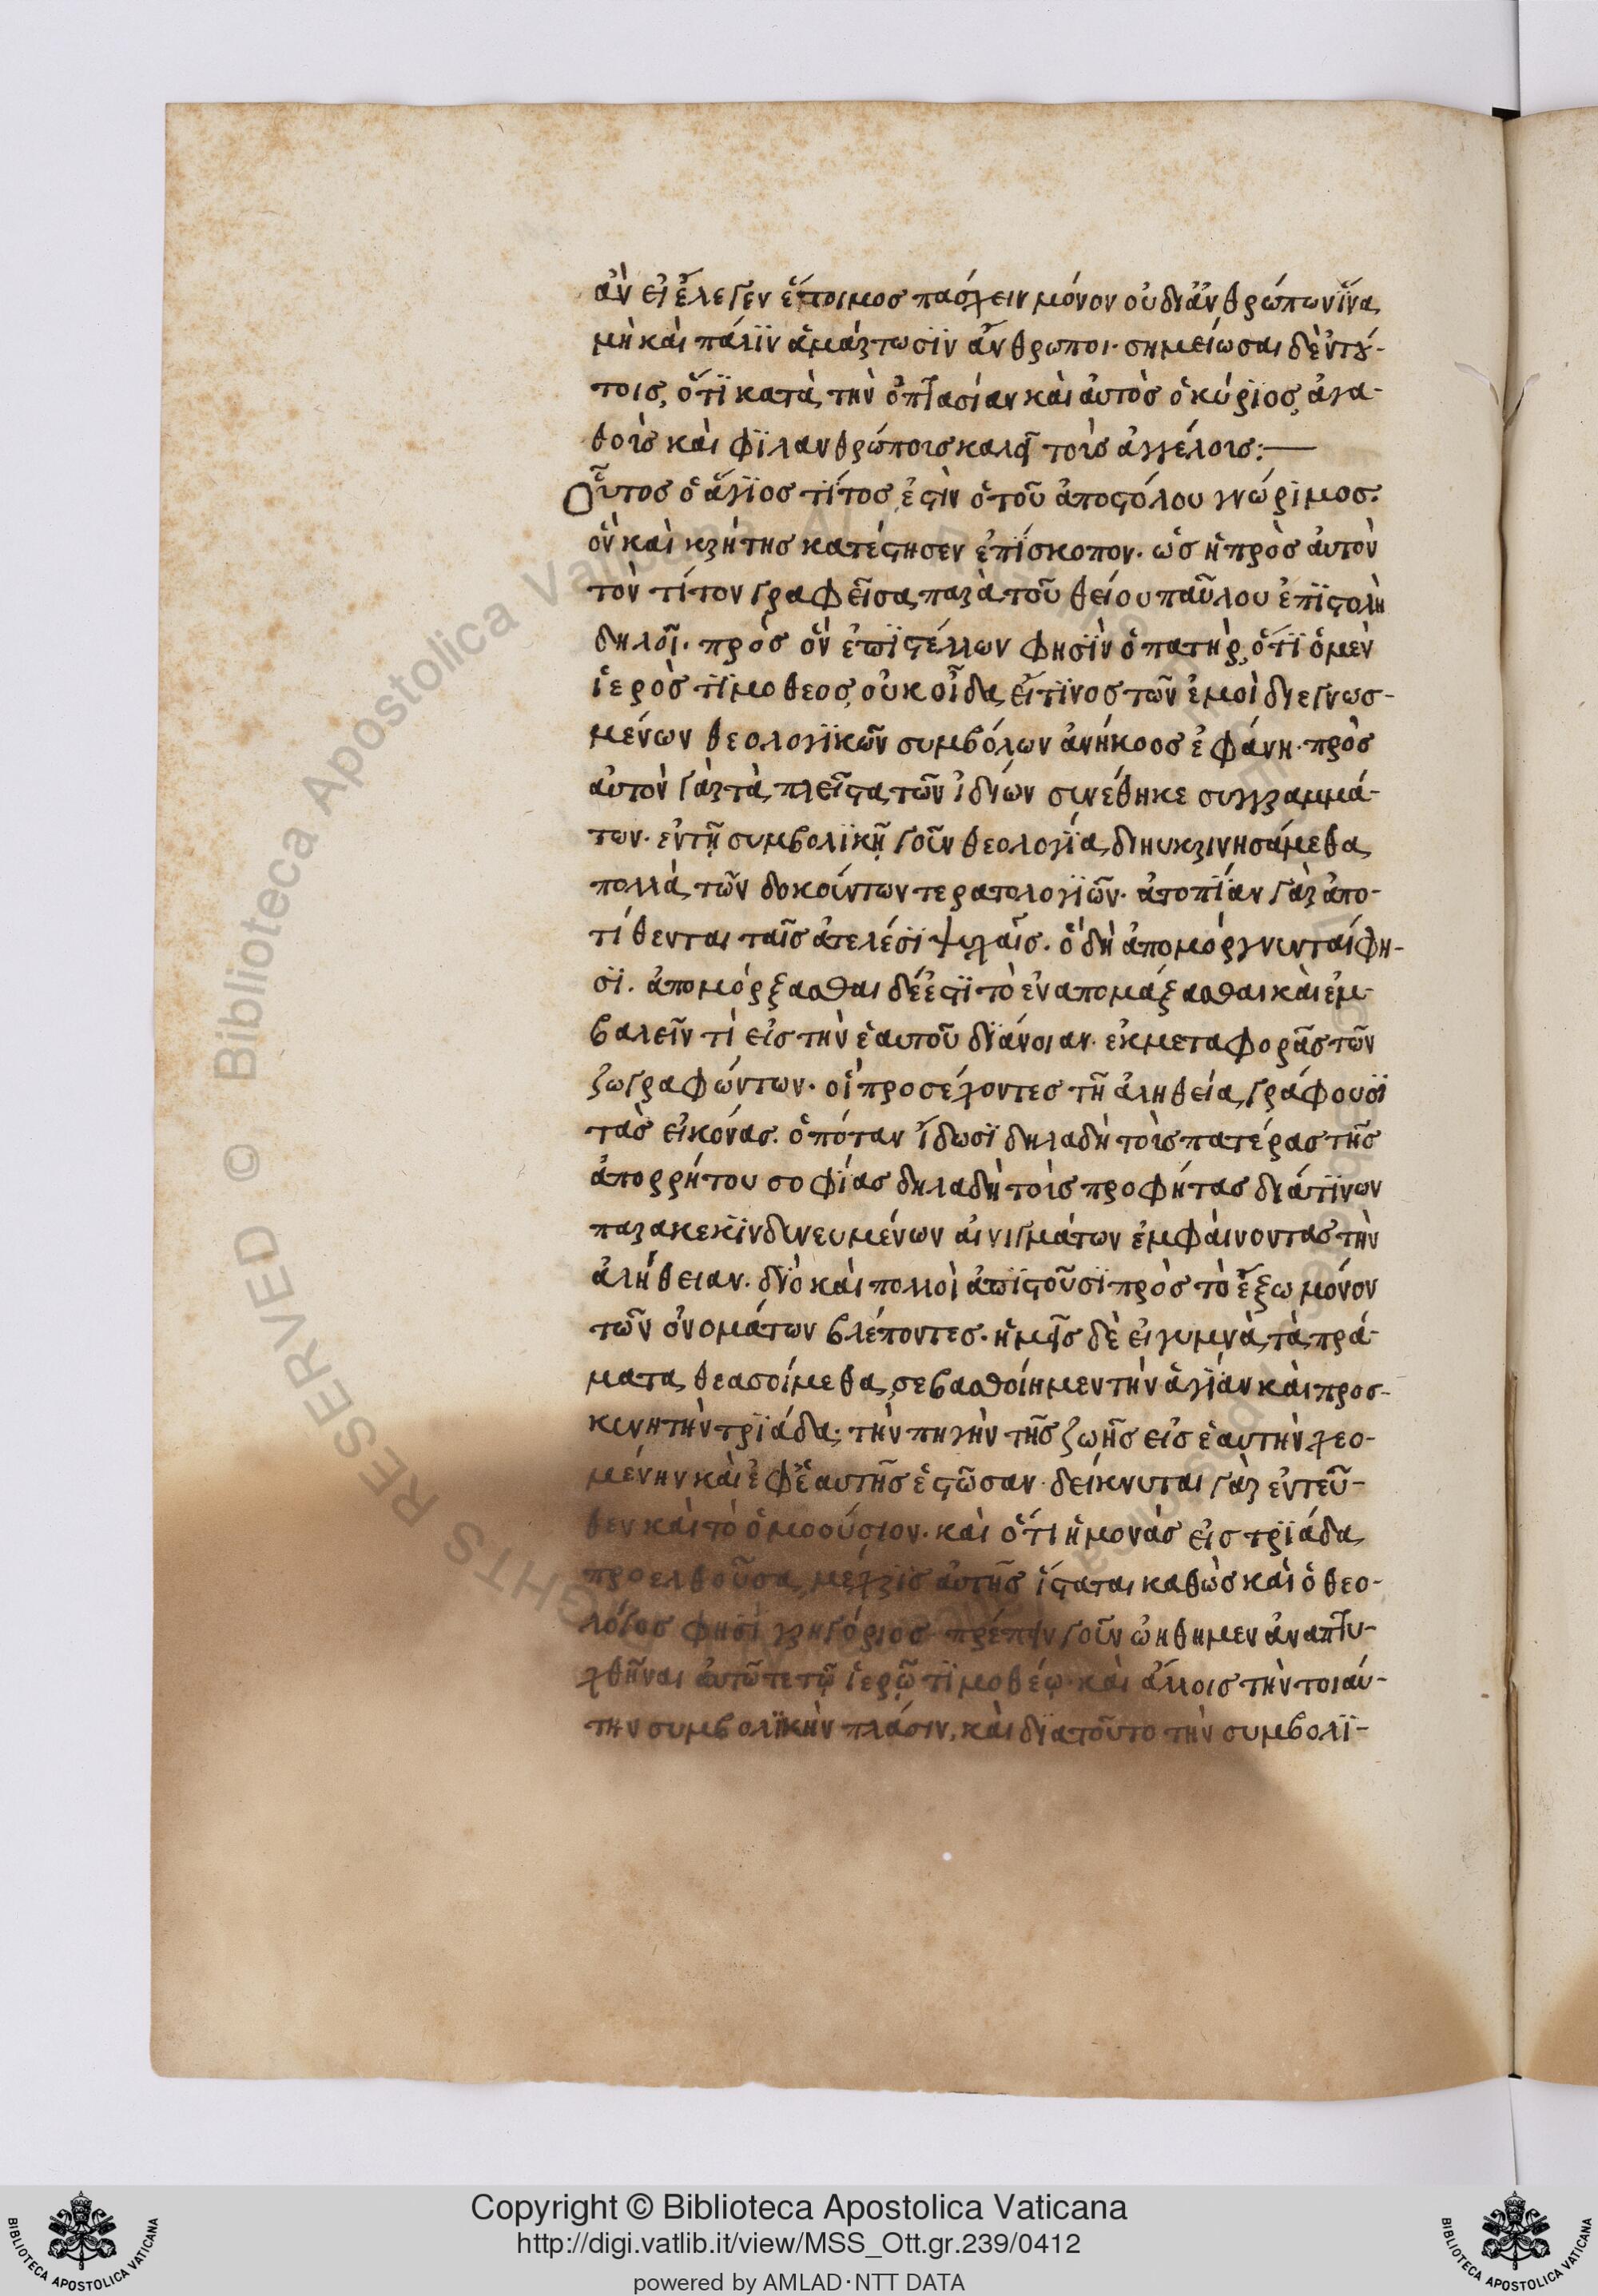 ἂν εἰ ἔλεγεν ἕτοιμος πάσχειν μόνον οὐ δι' ἀνθρώπων ἵνα
μὴ καὶ πάλϊν ἁμάρτωσϊν ἄνθρωποι· σημείωσαι δὲ ἐν τού-
τοις, ὅτϊ κατὰ τὴν ὀπτασίαν καὶ αὐτὸς ὁ κύρϊος, ἀγα-
θοῖς καὶ φϊλανθρώποις καλεῖ τοῖς ἀγγέλοις:—
Οὗτος ὁ ἅγϊος τίτος, ἐστὶν ὁ τοῦ ἀποστόλου γνώρϊμος·
ὃν καὶ κρήτης κατέστησεν ἐπίσκοπον· ὡς ἡ πρὸς αὐτὸν
τὸν τίτον γραφεῖσα παρὰ τοῦ θείου παύλου ἐπϊστολὴ
δηλοῖ· πρὸς ὃν ἐπϊστέλλων φησϊν ὁ πατὴρ, ὅτϊ ὁ μὲν
ἱερὸς τϊμόθεος, οὐκ οἶδα εἴ τϊνος τῶν ἐμοὶ διεγνωσ-
μένων θεολογϊκῶν συμβόλων ἀνήκοος ἐφάνη· πρὸς
αὐτὸν γὰρ τὰ πλεῖστα τῶν ἰδίων συνέθηκε συγγραμμά-
των· ἐν τῇ συμβολϊκῇ γοῦν θεολογία διηυκρινησάμεθα
πολλὰ τῶν δοκούντων τερατολογϊῶν· ἀτοπίαν γὰρ ἀπο-
τίθενται ταῖς ἀτελέσϊ ψυχαῖς· ὃ δὴ ἀπομόργνυνταί φη-
σϊ. ἀπομόρξασθαι δέ ἐστϊ τὸ ἐναπομάξασθαι καὶ ἐμ-
βαλεῖν τὶ εἰς τὴν ἑαυτοῦ διάνοιαν· ἐκ μεταφορᾶς τῶν
ζωγραφώντων· οἳ προσέχοντες τῇ ἀληθεία γράφουσϊ
τὰς εἰκόνας. ὁπόταν ἴδωσϊ δηλαδὴ τοὺς πατέρας τῆς
ἀπορρήτου σοφίας δηλαδὴ τοὺς προφήτας διά τϊνων
παρακεκϊνδυνευμένων αἰνιγμάτων ἐμφαίνοντας τὴν
ἀλήθειαν· διὸ καὶ πολλοὶ ἀπϊστοῦσϊ πρὸς τὸ ἔξω μόνον
τῶν ὀνομάτων βλέποντες· ἡμεῖς δὲ εἰ γυμνὰ τὰ πρά-
ματα θεασοίμεθα, σεβασθοίημεν τὴν ἁγίαν καὶ προσ-
κυνητὴν τρϊάδα· τὴν πηγὴν τῆς ζωῆς εἰς ἑαυτὴν χεο-
μένην καὶ ἐφ' ἑαυτῆς ἑστῶσαν· δείκνυται γὰρ ἐντεῦ-
θεν καὶ τὸ ὁμοούσιον· καὶ ὅτι ἡ μονὰς εἰς τρϊάδα
προελθοῦσα, μέχρϊς αὐτῆς ἵσταται καθὼς καὶ ὁ θεο-
λόγος φησὶ γρηγόριος· πρέπειν γοῦν ᾠήθημεν ἀναπτυ-
χθῆναι αὐτῶ τε τῷ ἱερῷ τϊμοθέῳ· καὶ ἄλλοις τὴν τοιαύ-
την συμβολϊκὴν πλάσιν, καὶ διὰ τοῦτο τὴν συμβολϊ-
Copyright © Biblioteca Apostolica Vaticana
http://digi.vatlib.it/view/MSS_Ott.gr.239/0412
powered by AMLAD·NTT DATA